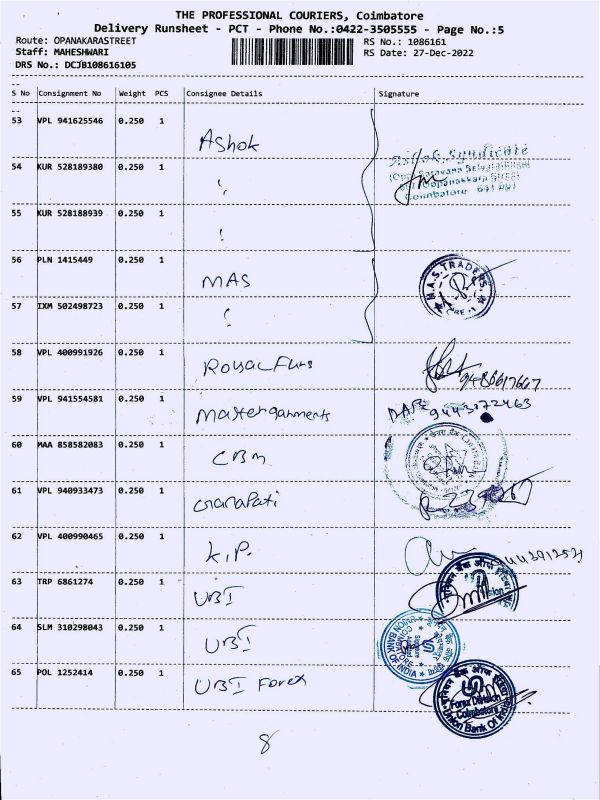 THE PROFESSIONAL COURIERS, Coimbatore
Delivery Runsheet - PCT - Phone No.:0422-3505555 - Page No.:5
Route: OPANAKARASTREET
RS No.: 1086161
Staff: MAHESHWARI
RS Date: 27-Dec-2022
DRS No.: DCJB108616105
S No Consignment No Weight PCS Consignee Details Signature
53 VPL 941625546 0.250 1 Ashok
Ashok Syndicate
54 KUR 528189380 0.250 1
Coimbatore 641 001
55 KUR 528188939 0.250 1
56 PLN 1415449 0.250 1 MAS
M.A.S. TRADERS
CBE - 1
57 IXM 502498723 0.250 1
58 VPL 400991926 0.250 1 Royal Furs
9486617667
59 VPL 941554581 0.250 1 Master garments
60 MAA 858582083 0.250 1 CBM
61 VPL 940933473 0.250 1 Ganapati
62 VPL 400990465 0.250 1 K.P.
63 TRP 6861274 0.250 1 UBI
64 SLM 310298043 0.250 1 UBI
UNION BANK OF INDIA
COIMBATORE
65 POL 1252414 0.250 1 UBI Forex
यूनियन बैंक ऑफ इंडिया
Forex Division
Coimbatore
Union Bank Of India
8